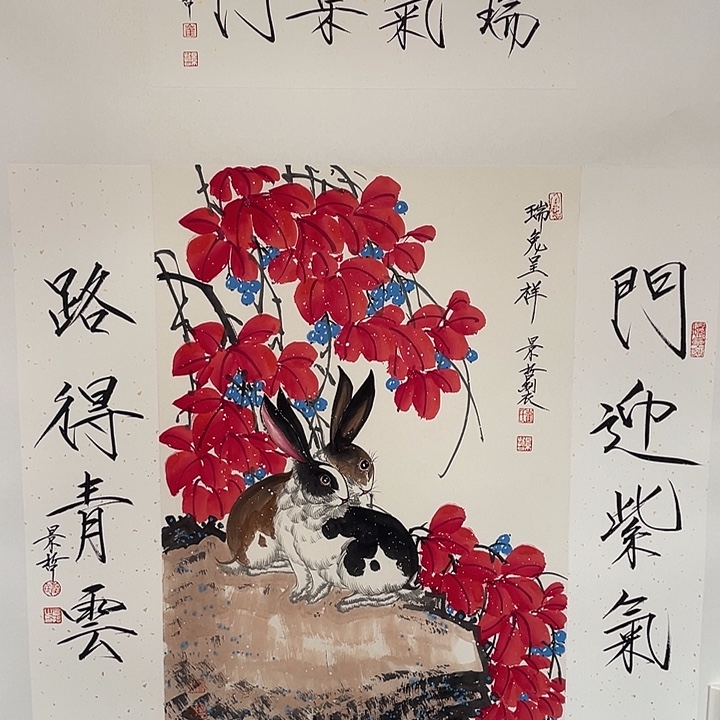 瑞氣
門
門迎紫氣
瑞兔呈祥
景
路得青雲
景